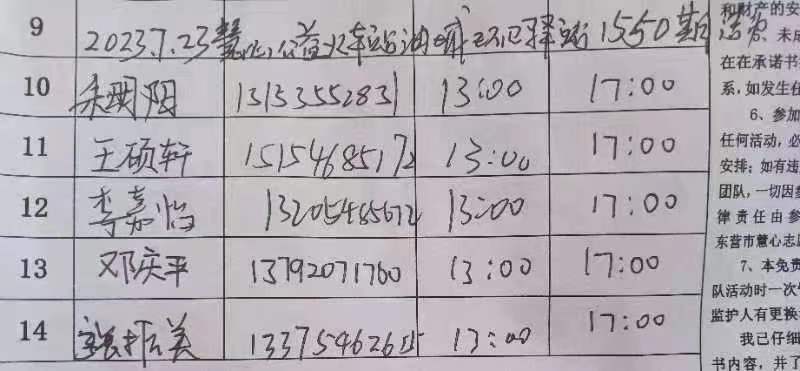 9 2023.7.23慧心公益火车站 1550期活动
10 朱明阳 13153552831 13:00 17:00
11 王硕轩 15154685172 13:00 17:00
12 李嘉怡 13205485672 13:00 17:00
13 邓庆平 13792071760 13:00 17:00
14 美 13:00 17:00
和财产的安
、未成
在在承诺书
系,如发生任
6、参加
任何活动,必
安排;如有违
团队,一切因
律责任由参
东营市慧心志愿
7、本免责
队活动时一次
监护人有更换
我已仔细
书内容,并了